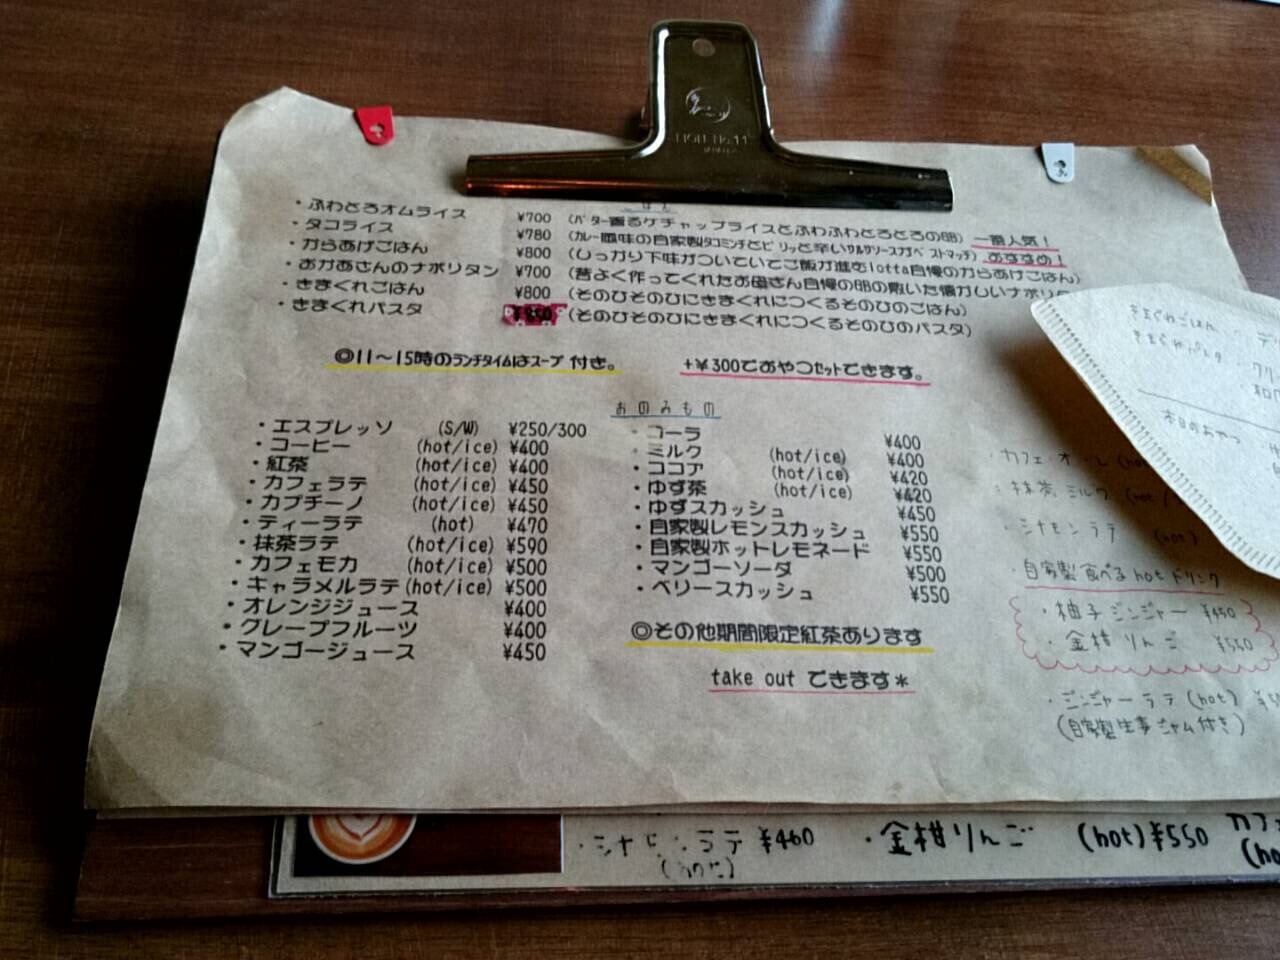 LION No.11
ごはん
・ふわとろオムライス ¥700 (バター香るケチャップライスとふわふわとろとろの卵) 一番人気！
・タコライス ¥780 (カレー風味の自家製タコミンチとピリッと辛いサルサソースがベストマッチ) おすすめ！
・からあげごはん ¥800 (しっかり下味がついていてご飯が進むlotta自慢のからあげごはん)
・おかあさんのナポリタン ¥700 (昔よく作ってくれたお母さん自慢の卵の敷いた懐かしいナポリ
・きまぐれごはん ¥800 (そのひそのひにきまぐれにつくるそのひのごはん)
・きまぐれパスタ ¥850 (そのひそのひにきまぐれにつくるそのひのパスタ)
◎11～15時のランチタイムはスープ付き。 +¥300でおやつセットできます。
おのみもの
・エスプレッソ (S/W) ¥250/300
・コーヒー (hot/ice) ¥400
・紅茶 (hot/ice) ¥400
・カフェラテ (hot/ice) ¥450
・カプチーノ (hot/ice) ¥450
・ティーラテ (hot) ¥470
・抹茶ラテ (hot/ice) ¥590
・カフェモカ (hot/ice) ¥500
・キャラメルラテ (hot/ice) ¥500
・オレンジジュース ¥400
・グレープフルーツ ¥400
・マンゴージュース ¥450
・コーラ ¥400
・ミルク (hot/ice) ¥400
・ココア (hot/ice) ¥420
・ゆず茶 (hot/ice) ¥420
・ゆずスカッシュ ¥450
・自家製レモンスカッシュ ¥550
・自家製ホットレモネード ¥550
・マンゴーソーダ ¥500
・ベリースカッシュ ¥550
◎その他期間限定紅茶あります
take out できます*
きまぐれごはん
きまぐれパスタ
本日のおやつ
・カフェ・オ・レ (hot
・抹茶ミルク (hot /
・シナモンラテ (hot)
・自家製食べるhotドリンク
・柚子ジンジャー ¥450
・金柑りんご ¥550
・ジンジャーラテ (hot)
(自家製生姜ジャム付き)
・シナモンラテ ¥460
・金柑りんご (hot) ¥550
カフェ
(ho